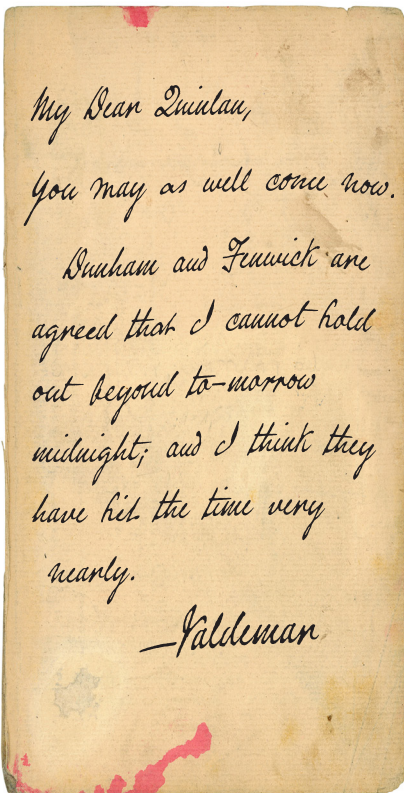 My Dear Quinlan,
You may as well come now.
Dunham and Fenwick are
agreed that I cannot hold
out beyond to-morrow
midnight; and I think they
have hit the time very
nearly.
—Valdemar